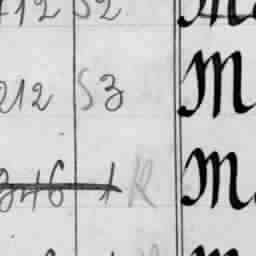 712 52 M
212 53 M
346 1 R M